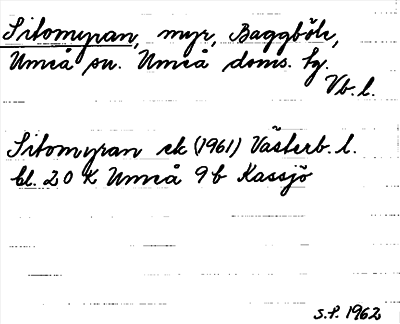 Sitomyran, myr, Baggböle,
Umeå sn. Umeå doms. tg.
Vb. l.
Sitomyran ek (1961) Västerb. l.
bl. 20 K Umeå 9b Kassjö
S.F. 1962